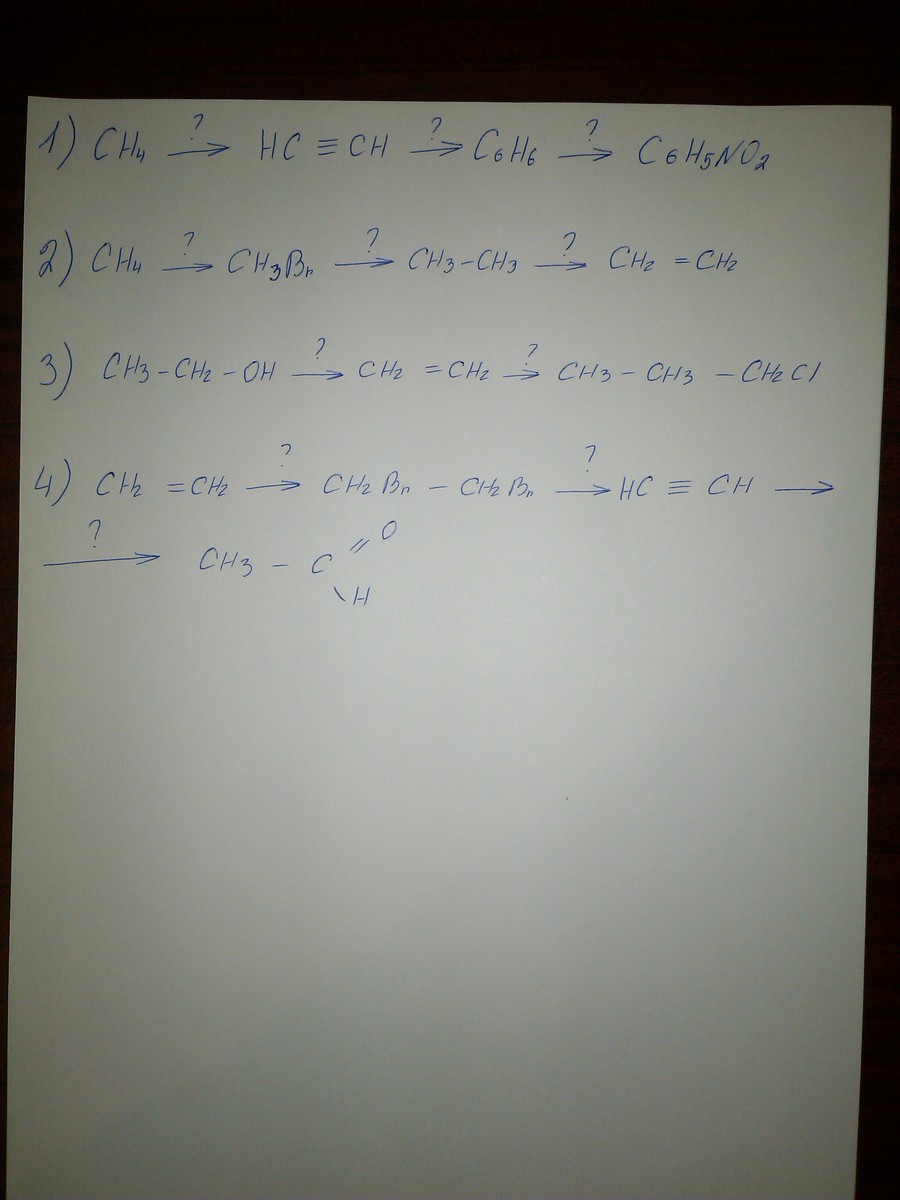 1) CH₄ →? HC ≡ CH →? C₆H₆ →? C₆H₅NO₂
2) CH₄ →? CH₃Br →? CH₃-CH₃ →? CH₂ = CH₂
3) CH₃-CH₂-OH →? CH₂ = CH₂ →? CH₃ - CH₃ - CH₂Cl
4) CH₂ = CH₂ →? CH₂Br - CH₂Br →? HC ≡ CH →
→? CH₃ - C =O
\H